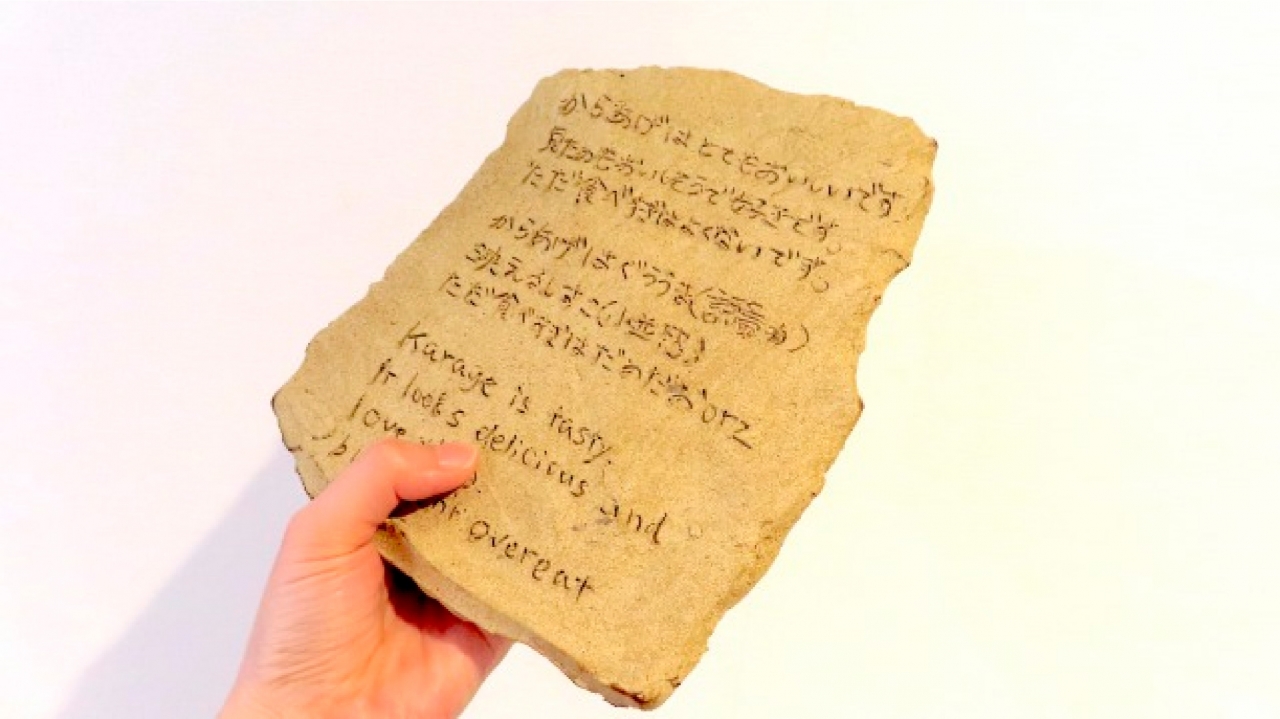 からあげはとてもおいしいです
見ためもおいしそうで好きです。
ただ食べすぎはよくないです。
からあげはぐうう(語)
映えよしすこ(小並感)
ただ食べすぎはだめだめorz
Karage is tasty.
It looks delicious and
love
overeat